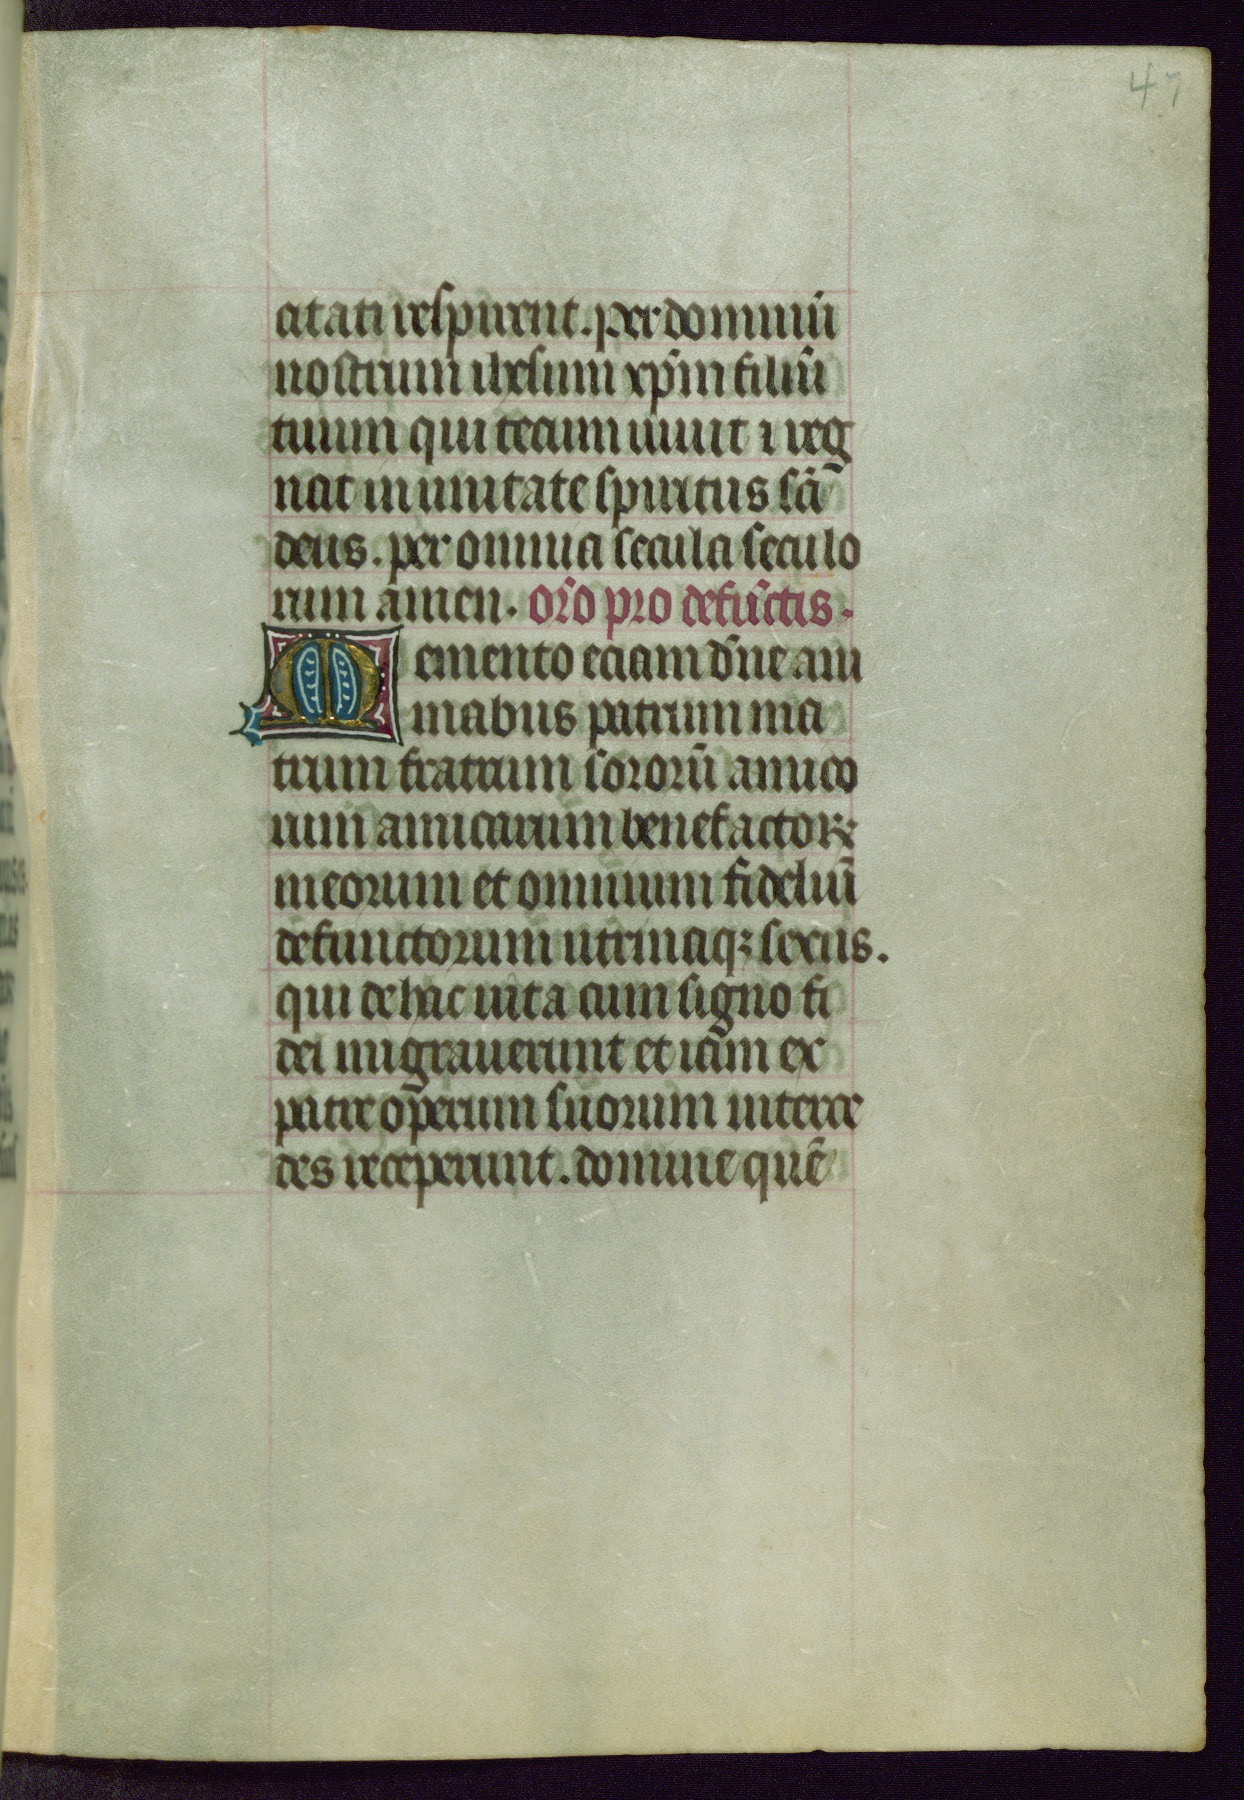 47
atati respirent. per dominū
nostrum ihesum xp̄m filiū
tuum qui tecum uiuit ⁊ reg
nat in unitate spiritus sc̄i
deus. per omnia secula seculo
rum amen. or̄o pro defūctis.
Memento eciam dn̄e ani
mabus patrum ma
trum fratrum sororū amico
rum amicarum benefactoꝝ
meorum et omnium fideliū
defunctorum utriusqꝫ sexus.
qui de hac uita cum signo fi
dei migrauerunt et iām ex
parte operum suorum merce
des receperunt. domine quē